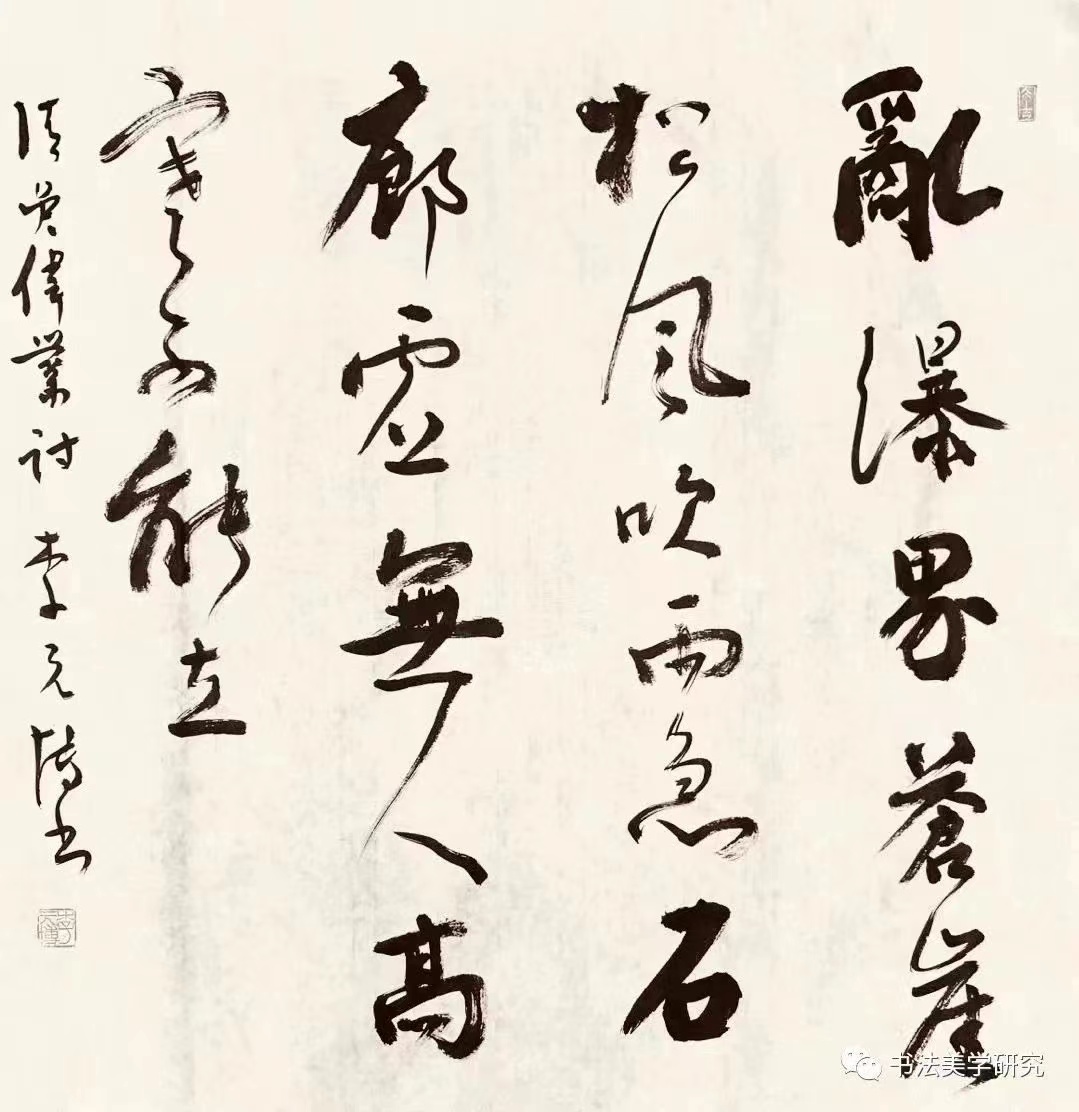 亂瀑界蒼崖
松風吹雨急石
廊虛無人高
寒不能立
清吳偉業詩 李元博书
书法美学研究